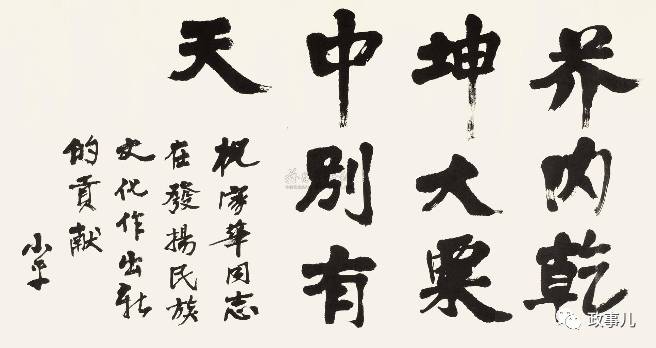 芥内乾
坤大粟
中别有
天
祝家華同志
在發揚民族
文化作出新
的貢献
小平
政事儿